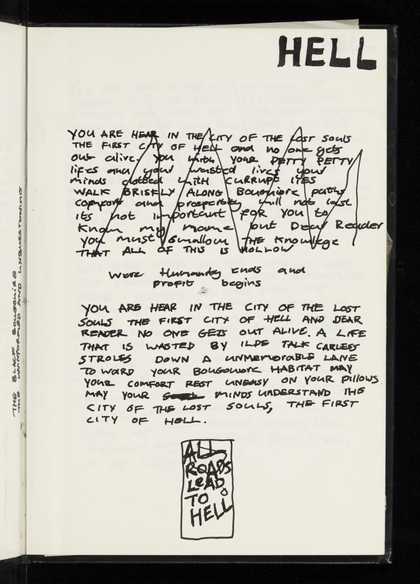 HELL
YOU ARE HEAR IN THE CITY OF THE LOST SOULS
THE FIRST CITY OF HELL and no one gets
out alive. You with your PETTY PETTY
lifes and your wasted lives your
minds clotted with CURRUPT LYES
WALK BRISKLY ALONG Bougniorc paths
comfort and prosperity will not last
its not important for you to
know my name but Dear Reader
you must swallow THE Knowlege
THAT ALL OF THIS IS HOLLOW
Were Humanity Ends and
profit begins
YOU ARE HEAR IN THE CITY OF THE LOST
SOULS THE FIRST CITY OF HELL AND DEAR
READER NO ONE GETS OUT ALIVE. A LIFE
THAT IS WASTED BY ILDE TALK CARLESS
STROLES DOWN A UNMEMORABLE LANE
TO WARD YOUR BOUGOWORC HABITAT MAY
YOUR COMFORT REST UNEASY ON YOUR PILLOWS
MAY YOUR MINDS UNDERSTAND THE
CITY OF THE LOST SOULS, THE FIRST
CITY OF HELL.
ALL
ROADS
LEAD
TO
HELL
THE BLACK
THE UNINFORMED AND UNQUESTIONING